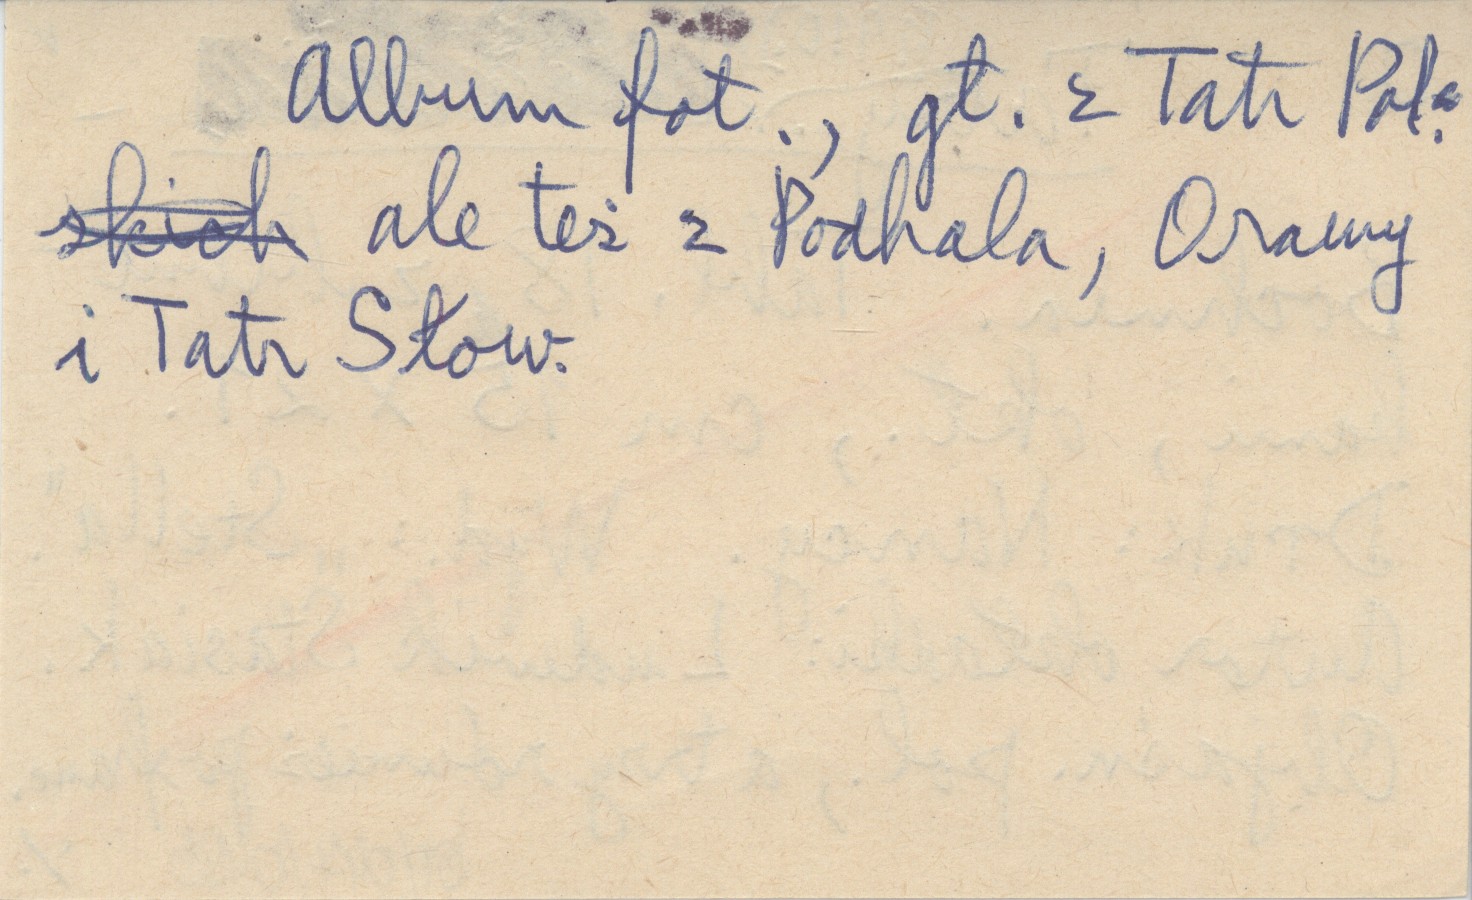 Album fot., gł. z Tatr Pol.
skich ale też z Podhala, Orawy
i Tatr Słow.